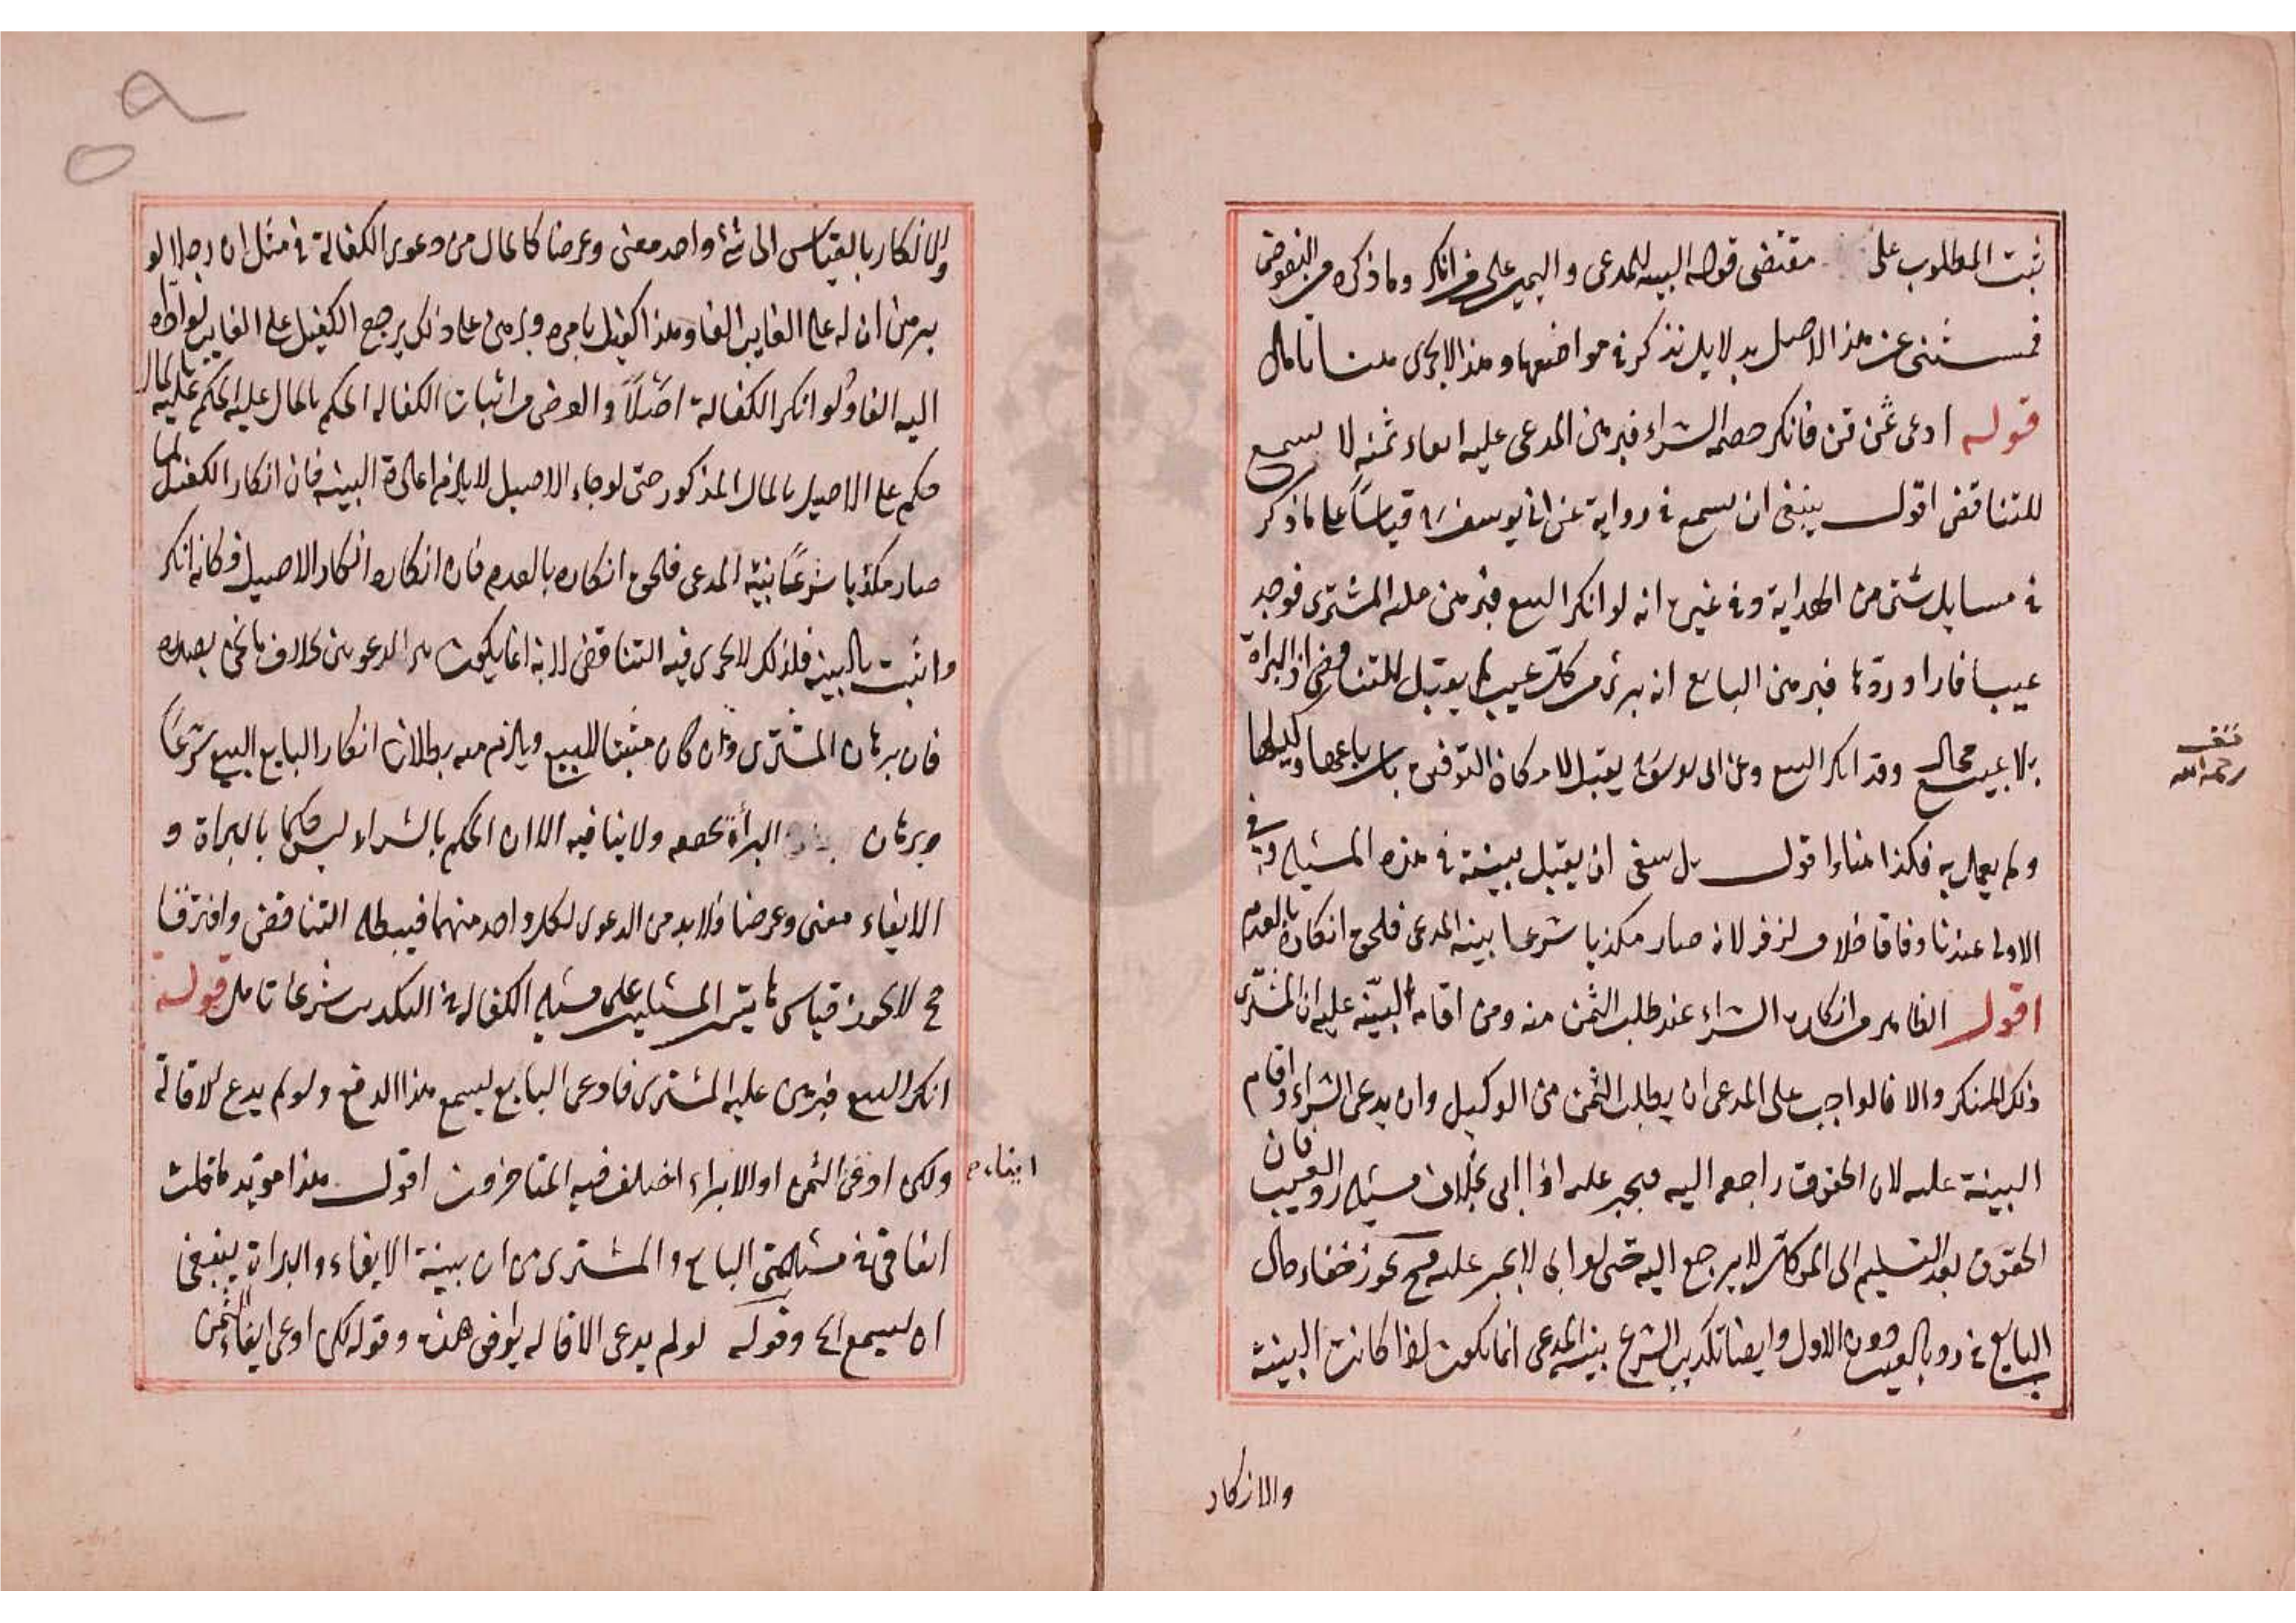 ثبت المطلوب على مقتضى قوله البينه للمدعى واليمين على من انكر وما ذكره من النقوض
فمستثنى عن هذا الاصل بدلايل تذكر فى مواضعها وهذا لا يجرى هنا تامل
قوله ادعى ثمن قن فانكر خصمه الشراء فبرهن المدعى عليه ايفاء ثمنه لا يسمع
للتناقض اقول ينبغى ان يسمع فى رواية عن ابى يوسف رح قياسًا على ما ذكر
فى مسايل شتى من الهداية وفى غيره انه لو انكر البيع فبرهن عليه المشترى فوجد
عيبا فاراد ردّها فبرهن البايع انه برئ من كل عيب لم يقبل للتناقض اذ البراة
بلا بيع محال وقد انكر البيع وعن ابى يوسف يقبل لامكان التوفيق بان باعها وكيلها
رحمه الله
ولم يعمل به فكذا هنا واقول بل ينبغى ان يقبل بينته فى هذه المسئله وفى
الاولى عندنا وفاقا خلاف لزفر لانه صار مكذبا شرعا ببينه المدعى فلحق انكاره بالعدم
اقول الظاهر من انكاره الشراء عند طلب الثمن منه ومن اقامه البيّنه عليه ان المشترى
ذلك المنكر والا فالواجب على المدعى ان يطلب الثمن من الوكيل وان يدعى الشراء واقام
البينة عليه لان الحقوق راجعه اليه فيجبر عليه اذا ابى بخلاف مسئله رد العيب فان
الحقوق بعد التسليم الى الموكل لا يرجع اليه حتى لو ابى لا يجبر عليه فح يجوز خفاء حال
البايع فى رد بالعيب دون الاول وايضا تكذيب الشرع بينه المدعى انما يكون اذا كانت البينة
والانكار
والانكار بالقياس الى شئ واحد معنى وغرضا كالمال من دعوى الكفالة فى مثل ان رجلا لو
برهن ان له على الغايب الفا وهذا كفيل بامره وبرهن على ذلك يرجع الكفيل على الغايب لو اداه
اليه الفا ولو انكر الكفالة اصلاً والغرض من اثبات الكفاله الحكم بالمال عليه الحكم عليه بالمال
حكم على الاصيل بالمال المذكور حتى لو جاء الاصيل لا يلزم اعادة البينه فان انكار الكفيل لما
صار مكذبا شرعًا ببينة المدعى فلحق انكاره بالعدم فان انكاره انكار الاصيل فكانه انكر
واثبت بالبينه فلذلك لا يجرى فيه التناقض لانه انما يكون بين الدعويين بخلاف ما نحن بصدده
فان برهان المشترى وان كان مثبتا للبيع ويلزم منه بطلان انكار البايع البيع شرعًا
وبرهان البرأة بخصمه ولا ينافيه الا ان الحكم بالشراء ليس حكما بالبراة و
الايفاء معنى وغرضا فلا بد من الدعوى لكل واحد منهما فيبطله التناقض وافترقا
فح لا يجوز قياس هاتين المسئلتين على مسئله الكفاله فى التكذيب شرعا تامل قوله
انكر البيع فبرهن عليه المشترى فادعى البايع يسمع هذا الدفع ولو لم يدع الاقالة
ولكن ادعى الثمن او الابراء اختلف فيه المتاخرون اقول هذا مؤيد ما قلت
ايفاء
انفا فى مسئلتى البايع والمشترى من ان بينة الايفاء والبراة ينبغى
ان يسمع الخ وقوله لو لم يدعى الاقاله يوافق هذه وقوله لكن ادعى ايفاء الثمن